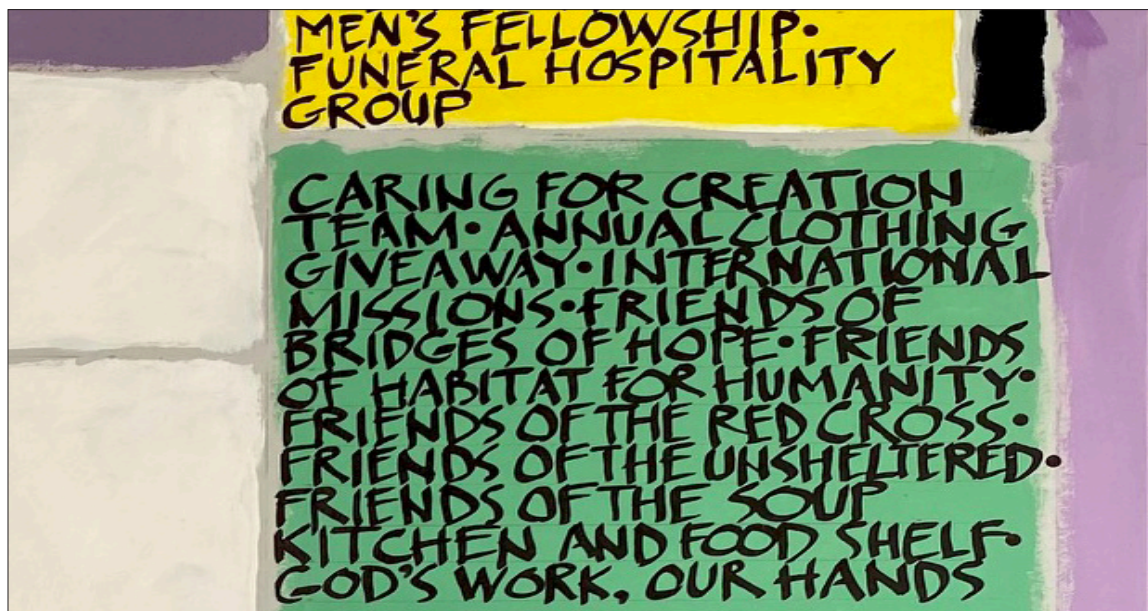 MEN'S FELLOWSHIP•
FUNERAL HOSPITALITY
GROUP
CARING FOR CREATION
TEAM• ANNUAL CLOTHING
GIVEAWAY•INTERNATIONAL
MISSIONS•FRIENDS OF
BRIDGES OF HOPE•FRIENDS
OF HABITAT FOR HUMANITY•
FRIENDS OF THE RED CROSS•
FRIENDS OF THE UNSHELTERED•
FRIENDS OF THE SOUP
KITCHEN AND FOOD SHELF•
GOD'S WORK, OUR HANDS